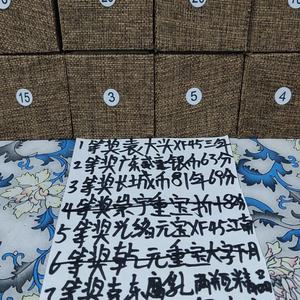 15
3
5
4
1等奖袁大头XF45三年
2等奖广东 银币63分
3等奖长城币81年69分
4等奖崇宁重宝折十8分
5等奖光绪元宝XF45江南
6等奖乾元重宝大字千月
7等奖京东 两瓶精品